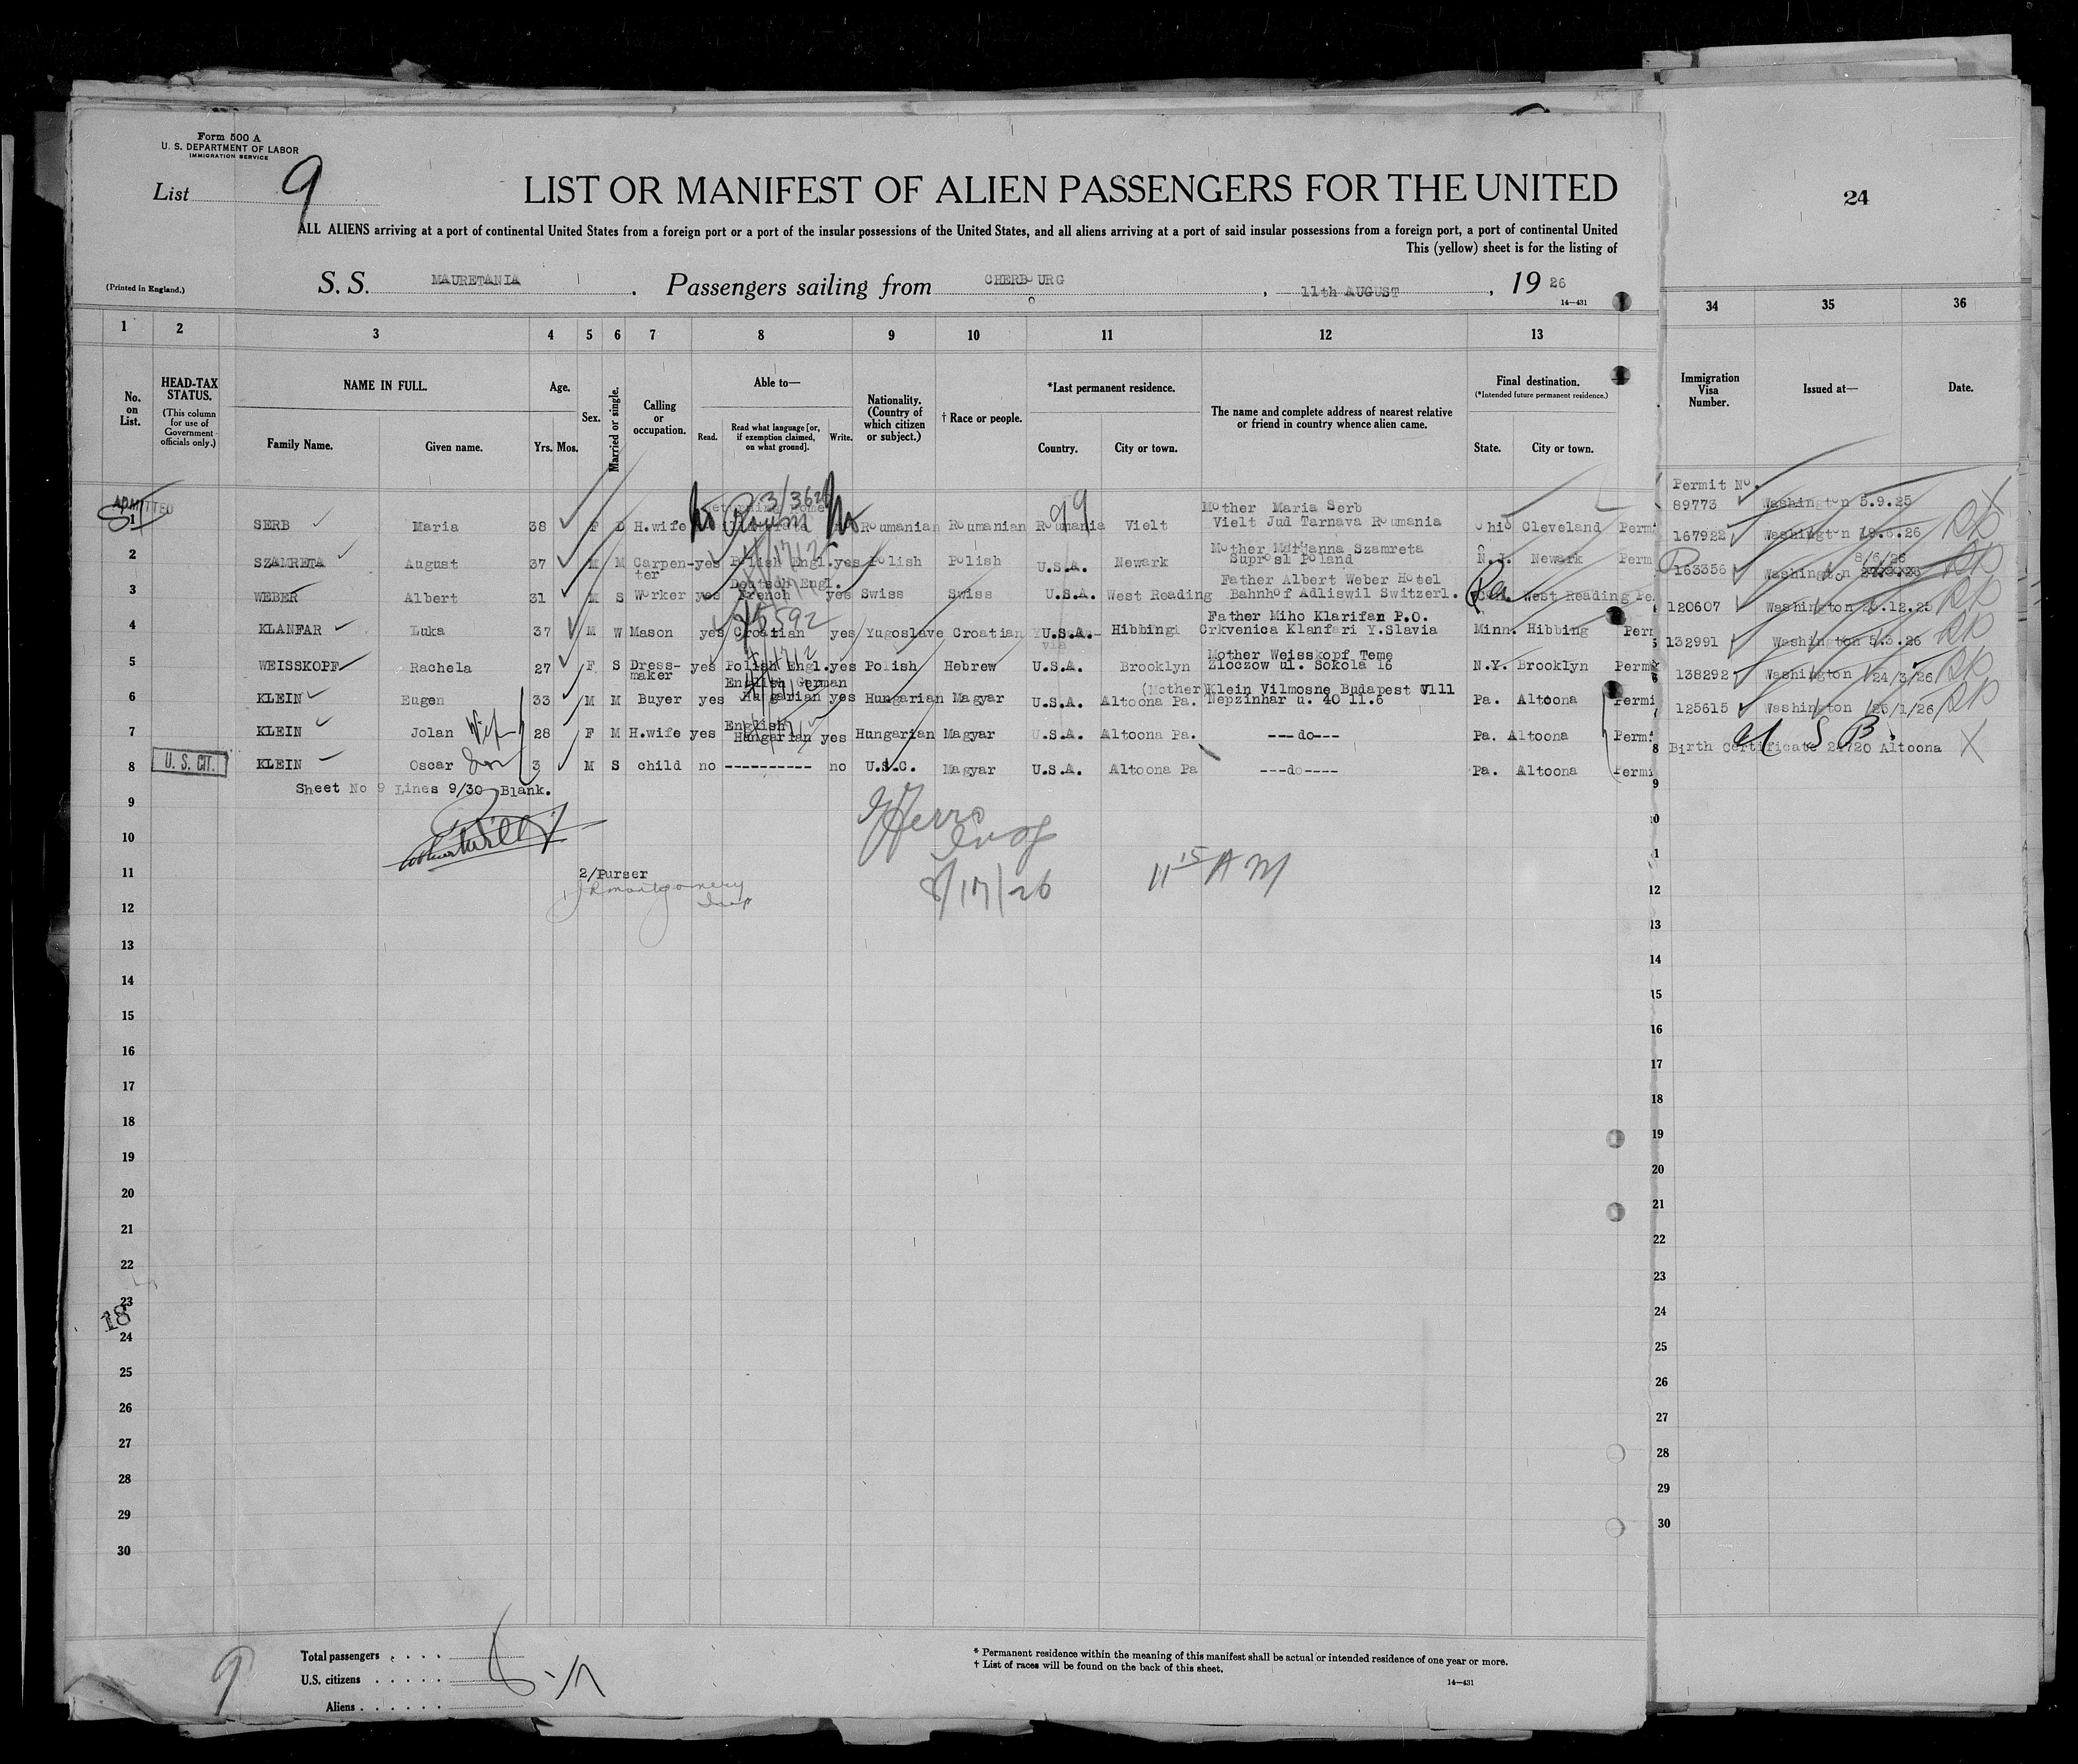 Form 500 A
U. S. DEPARTMENT OF LABOR
IMMIGRATION SERVICE
List 9
LIST OR MANIFEST OF ALIEN PASSENGERS FOR THE UNITED
ALL ALIENS arriving at a port of continental United States from a foreign port or a port of the insular possessions of the United States, and all aliens arriving at a port of said insular possessions from a foreign port, a port of continental United
This (yellow) sheet is for the listing of
(Printed in England.)
S. S. MAURETANIA . Passengers sailing from CHERBOURG , 11th AUGUST , 19 26
14—431
24
1 2 3 4 5 6 7 8 9 10 11 12 13 34 35 36
No. on List.
HEAD-TAX STATUS.
(This column for use of Government officials only.)
NAME IN FULL.
Family Name. Given name.
Age.
Yrs. Mos.
Sex.
Married or single.
Calling or occupation.
Able to—
Read. Read what language [or, if exemption claimed, on what ground]. Write.
Nationality. (Country of which citizen or subject.)
† Race or people.
*Last permanent residence.
Country. City or town.
The name and complete address of nearest relative or friend in country whence alien came.
Final destination.
(*Intended future permanent residence.)
State. City or town.
Immigration Visa Number.
Issued at—
Date.
ADMITTED
Permit No.
1 SERB Maria 38 F D H.wife No Roum No Roumanian Roumanian Roumania Vielt Mother Maria Serb Vielt Jud Tarnava Roumania Ohio Cleveland Perm
89773 Washington 5.9.25
2 SZAMRETA August 37 M M Carpenter yes Polish Engl. yes Polish Polish U.S.A. Newark Mother Marjanna Szamreta Suprosl Poland N.J. Newark Perm
167922 Washington 18.6.26
3 WEBER Albert 31 M S Worker yes Deutsch Engl. French yes Swiss Swiss U.S.A. West Reading Father Albert Weber Hotel Bahnhof Adliswil Switzerl. Pa. West Reading Pe
163356 Washington 8/6/26
4 KLANFAR Luka 37 M W Mason yes Croatian yes Yugoslave Croatian U.S.A. Hibbing Father Miho Klarifan P.O. Crkvenica Klanfari Y.Slavia Minn. Hibbing Perm
120607 Washington 15.12.25
5 WEISSKOPF Rachela 27 F S Dress-maker yes Polish Engl. yes Polish Hebrew U.S.A. Brooklyn Mother Weisskopf Teme Zloczow ul. Sokola 16 N.Y. Brooklyn Perm
132991 Washington 5.3.26
6 KLEIN Eugen 33 M M Buyer yes English German Hungarian yes Hungarian Magyar U.S.A. Altoona Pa. (Mother) Klein Vilmosne Budapest V111 Nepzinhar u. 40 11.6 Pa. Altoona Permi
138292 Washington 24/3/26
7 KLEIN Jolan Wife 28 F M H.wife yes English Hungarian yes Hungarian Magyar U.S.A. Altoona Pa. ---do--- Pa. Altoona Permi
125615 Washington 25/1/26
8 U. S. CIT. KLEIN Oscar Son 3 M S child no ---------- no U.S.C. Magyar U.S.A. Altoona Pa ---do---- Pa. Altoona Permi
8 Birth Certificate 24720 Altoona
Sheet No 9 Lines 9/30 Blank.
9
10
11
12
13
14
15
16
17
18
19
20
21
22
23
24
25
26
27
28
29
30
2/Purser
JR Montgomery
Insp
8/17/26
11 15 AM
18
9
Total passengers . . . .
U.S. citizens . . . . .
Aliens . . . . . .
* Permanent residence within the meaning of this manifest shall be actual or intended residence of one year or more.
† List of races will be found on the back of this sheet.
14—431